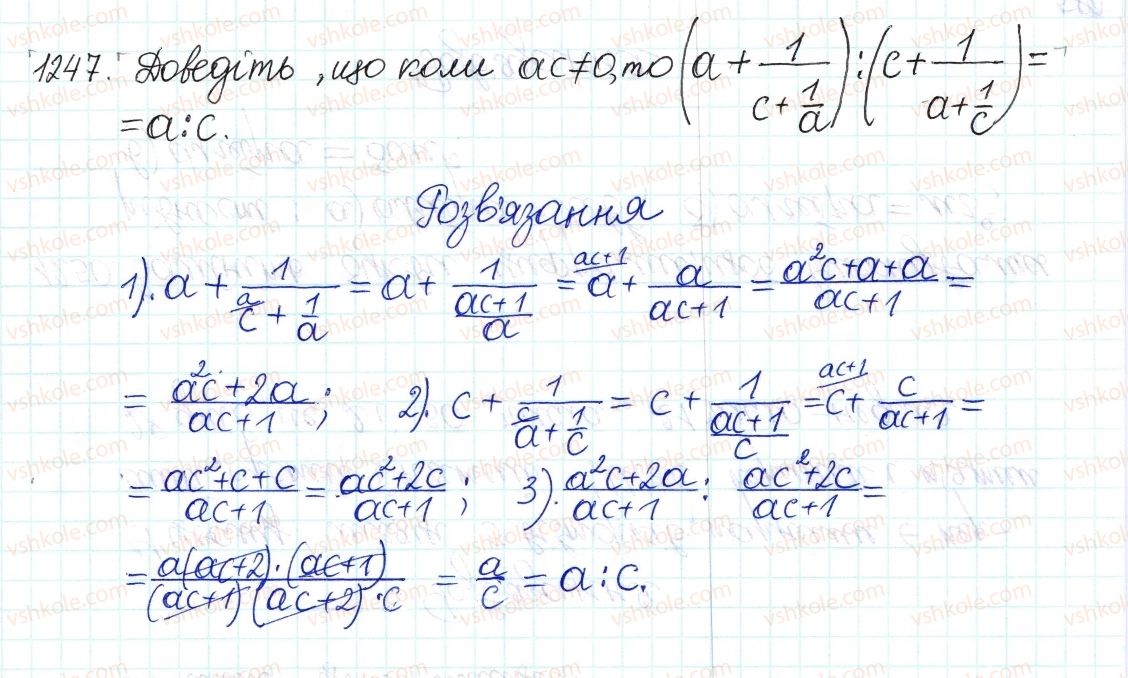 1247. Доведіть, що коли ac≠0, то (a + 1/(c + 1/a)) : (c + 1/(a + 1/c)) =
= a : c.
Розв'язання
1). a + 1/(a/c + 1/a) = a + 1/((ac+1)/a) = a^(ac+1) + a/(ac+1) = (a²c+a+a)/(ac+1) =
= (a²c+2a)/(ac+1); 2). c + 1/(c/a + 1/c) = c + 1/((ac+1)/c) = c^(ac+1) + c/(ac+1) =
= (ac²+c+c)/(ac+1) = (ac²+2c)/(ac+1); 3). (a²c+2a)/(ac+1) : (ac²+2c)/(ac+1) =
= (a(ac+2)·(ac+1))/((ac+1)(ac+2)·c) = a/c = a : c.
vshkole.com